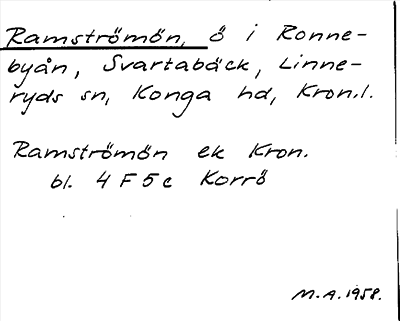 Ramströmön, ö i Ronne-
byån, Svartabäck, Linne-
ryds sn, Konga hd, Kron.l.
Ramströmön ek Kron.
bl. 4 F 5 c Korrö
M.A. 1958.